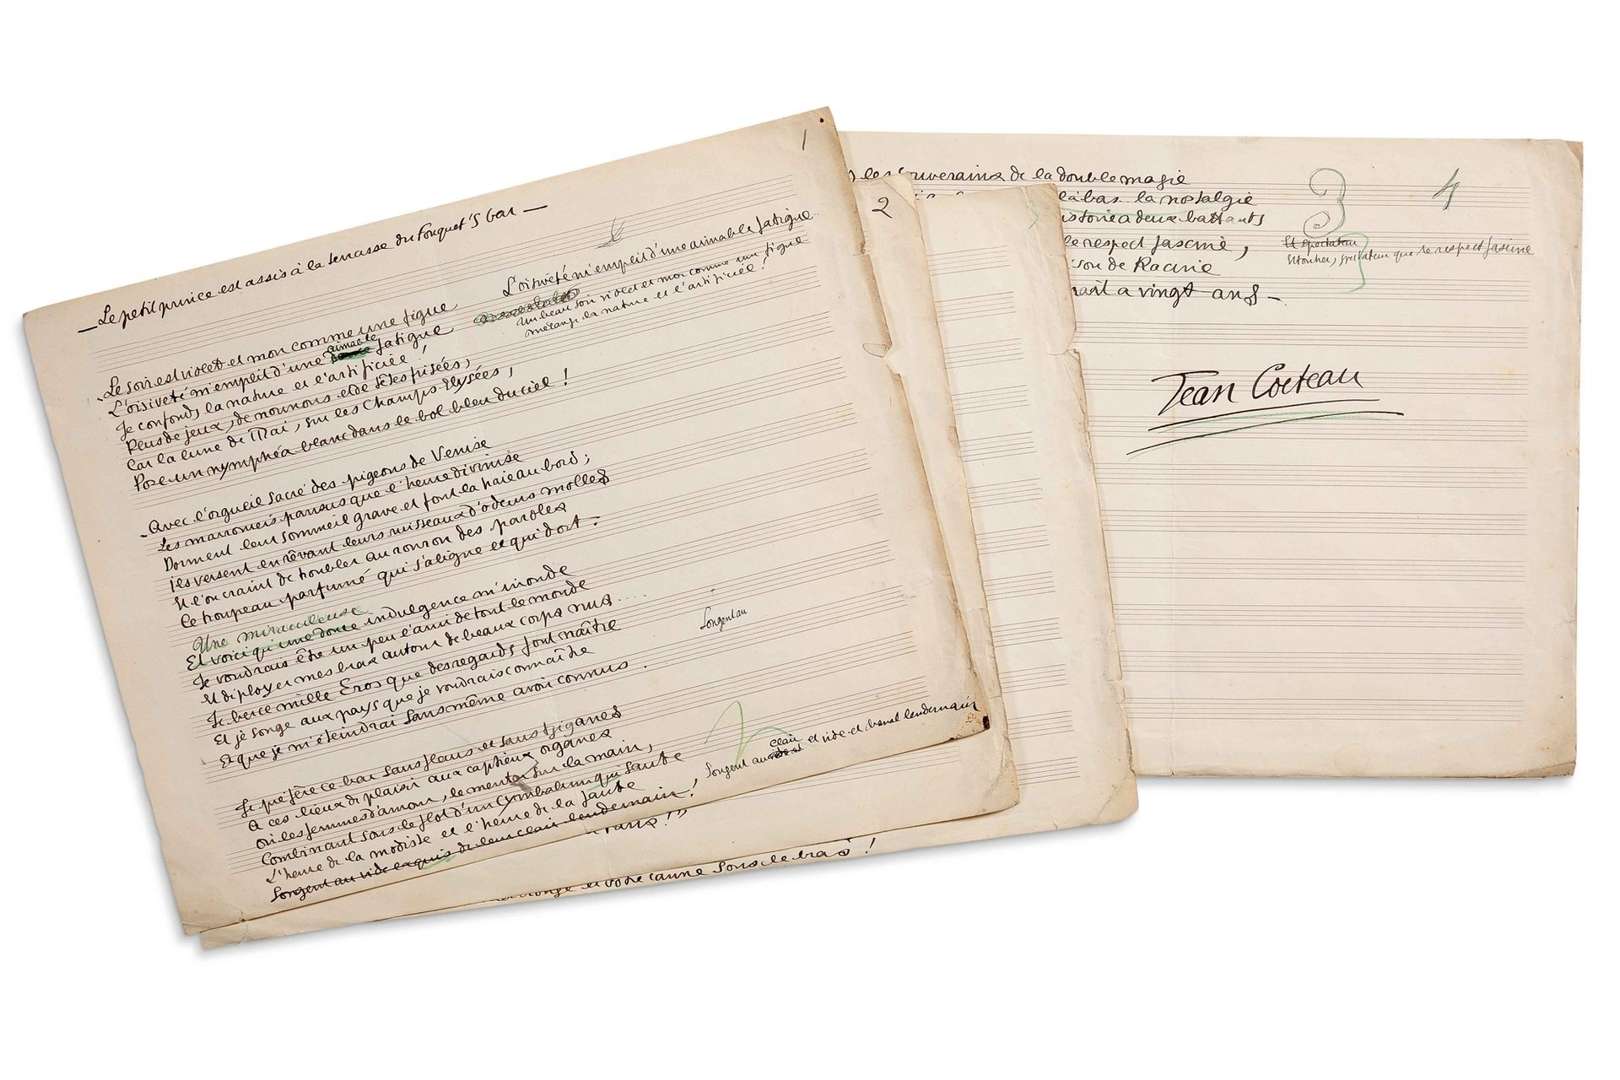 1
— Le petit prince est assis à la terrasse du Fouquet's bar —
L'oisiveté m'emplit d'une aimable fatigue
Un beau soir violet et mon comme une figue
mélange la nature et l'artificiée !
Le soir est violet et mon comme une figue
aimable
L'oisiveté m'emplit d'une fatigue
Je confonds la nature et l'artificiée,
Plus de jeux, de nounous et de têtes frisées,
Car la lune de Mai, sur les Champs Elysées,
Pose un nymphéa blanc dans le bol bleu du ciel !
Avec l'orgueil sacré des pigeons de Venise
Les marronniers parisiens que l'heure divinise
Dorment leur sommeil grave et font la haie au bord ;
Ils versent en rêvant leurs ruisseaux d'odeurs molles
Et l'on craint de troubler au ronron des paroles
Ce troupeau parfumé qui s'aligne et qui dort.
Une miraculeuse
Et voici qu'une douce indulgence m'inonde
Je voudrais être un peu l'ami de tout le monde
Et déployer mes bras autour de beaux corps nus....
Je berce mille Éros que des regards font naître
Et je songe aux pays que je voudrais connaître
Et que je m'éteindrai sans même avoir connus.
Songent au
Je préfère ce bar sans fleurs et sans tziganes
A ces lieux de plaisir aux capiteux organes
Où les femmes d'amour, le menton sur la main,
Combinant sous le flot d'un cymbalum qui saute
L'heure de la modiste et l'heure de la faute
Songent au vide exquis de leur clair lendemain !
clair
Songent au et vide et banal lendemain
2
et votre canne sous le bras !
les souverains de la double magie
là bas la nostalgie
à deux battants
le respect fasciné,
de Racine
avait a vingt ans —
3
4
spectateur que le respect fascine
Jean Cocteau